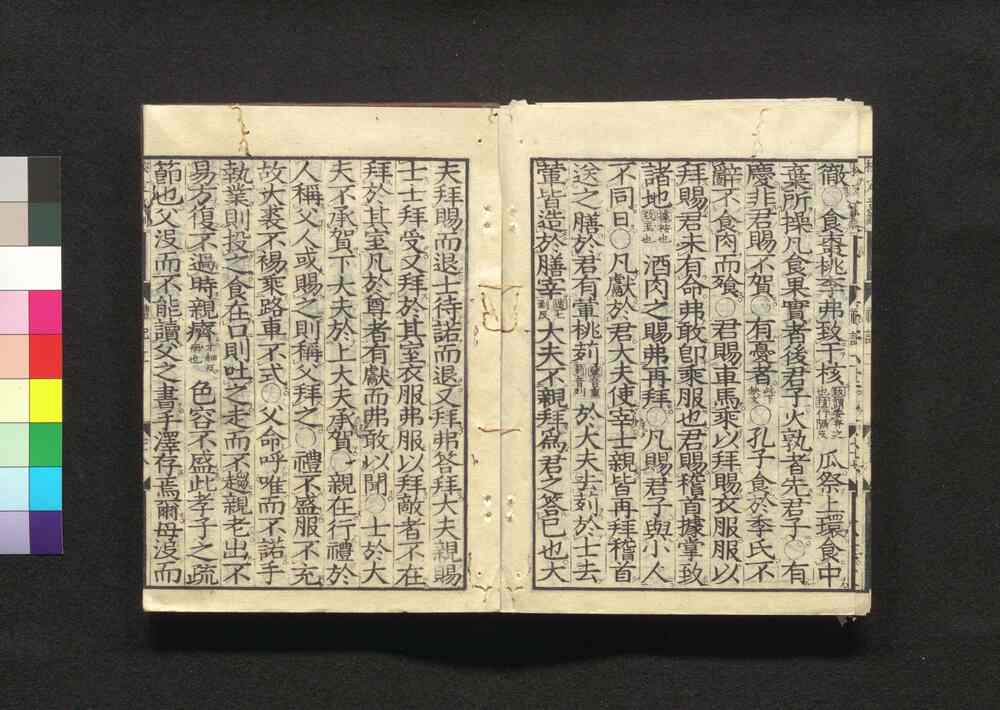 徹○食棗桃李弗致于核瓜祭上環食中
棄所操凡食果實者後君子火孰者先君子○有
慶非君賜不賀○有憂者○孔子食於季氏不
辭不食肉而飧○君賜車馬乘以拜賜衣服服以
拜賜君未有命弗敢卽乘服也君賜稽首據掌致
諸地酒肉之賜弗再拜○凡賜君子與小人
不同日○凡獻於君大夫使宰士親皆再拜稽首
送之膳於君有葷桃茢於大夫去茢於士去
葷皆造於膳宰大夫不親拜爲君之答已也大
夫拜賜而退士待諾而退又拜弗答拜大夫親賜
士士拜受又拜於其室衣服弗服以拜敵者不在
拜於其室凡於尊者有獻而弗敢以聞○士於大
夫不承賀下大夫於上大夫承賀○親在行禮於
人稱父人或賜之則稱父拜之○禮不盛服不充
故大裘不裼乘路車不式○父命呼唯而不諾手
執業則投之食在口則吐之走而不趨親老出不
易方復不過時親癠色容不盛此孝子之疏
節也父没而不能讀父之書手澤存焉爾母没而